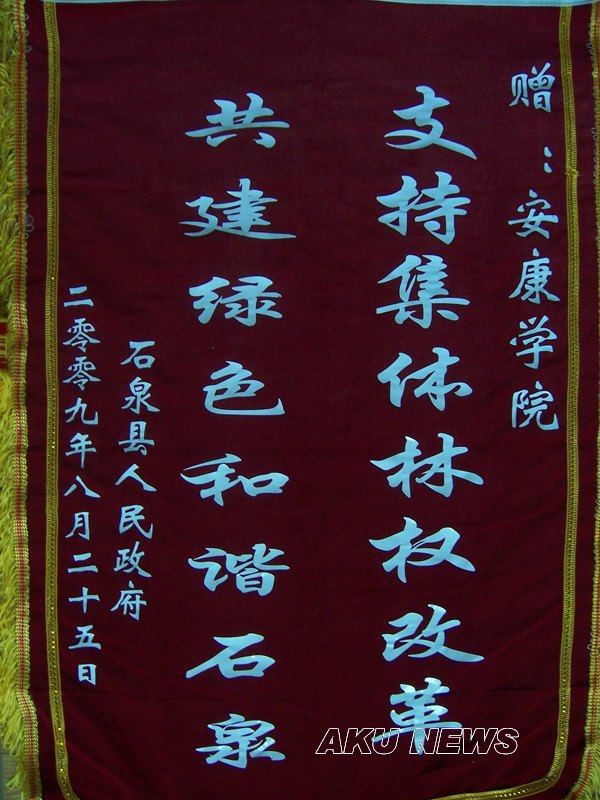 赠：安康学院
支持集体林权改革
共建绿色和谐石泉
石泉县人民政府
二零零九年八月二十五日
AKU NEWS